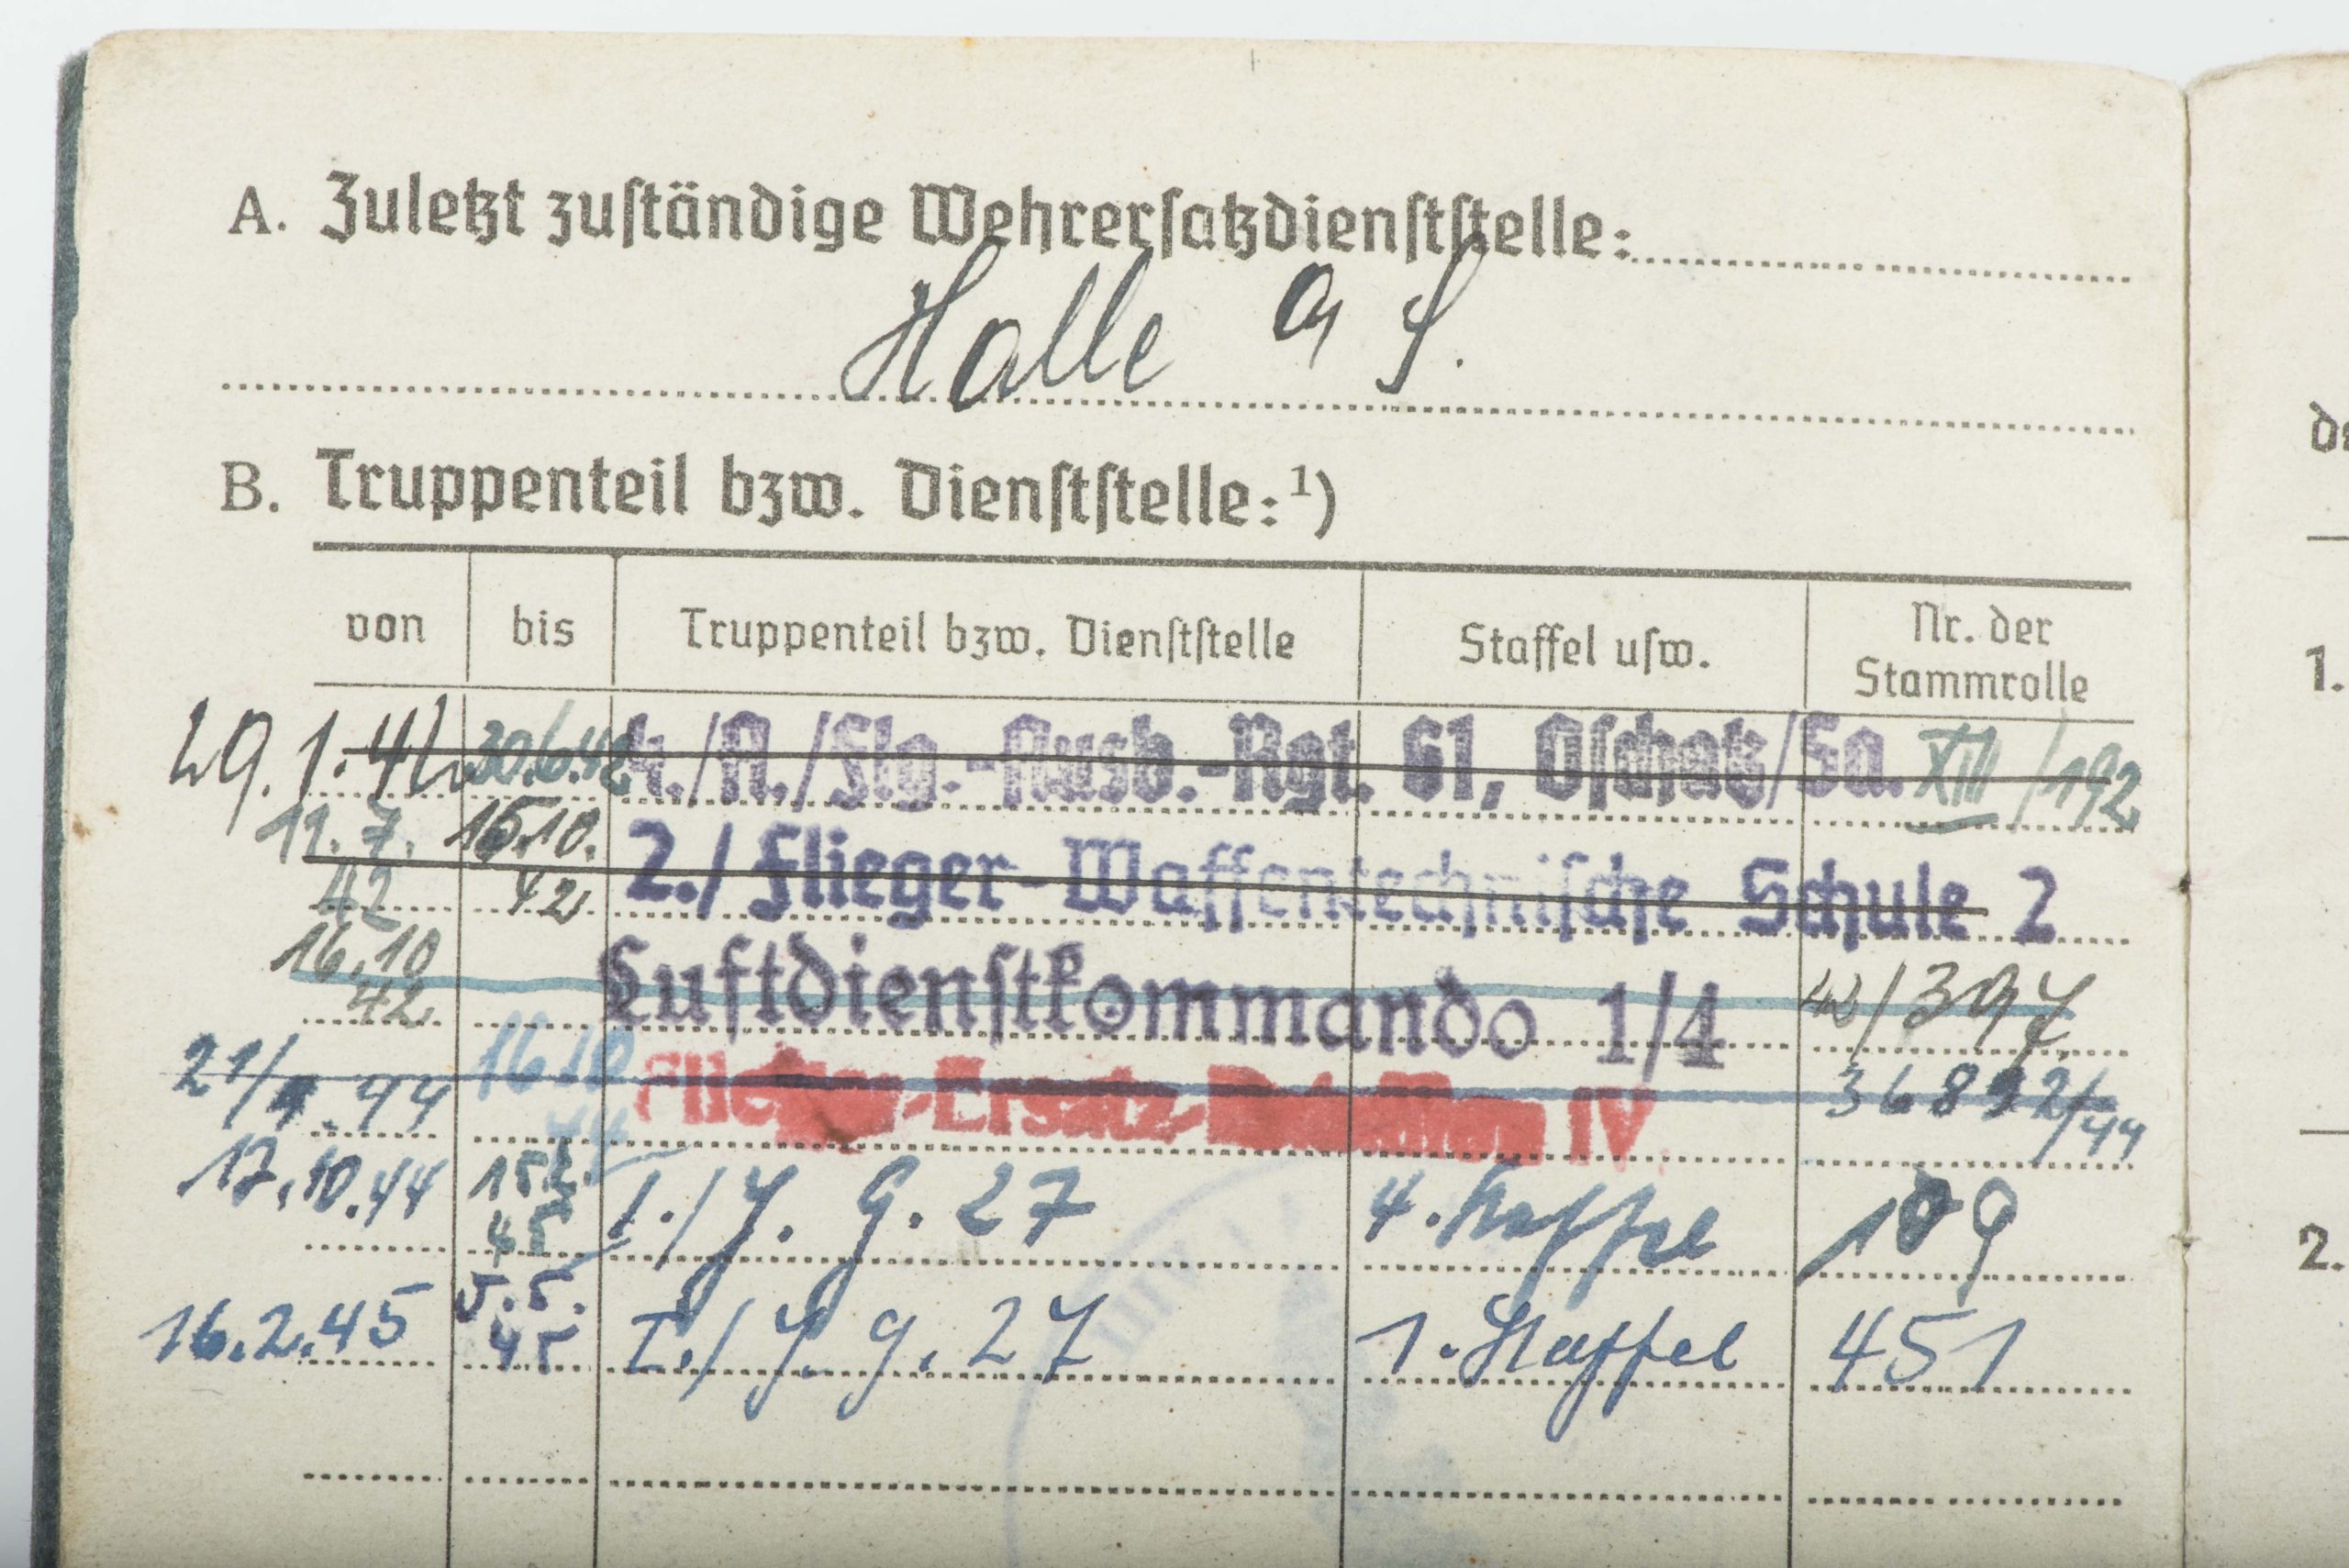 A. Zuletzt zuständige Wehrersatzdienststelle:
Halle a S.
B. Truppenteil bzw. Dienststelle:¹)
von bis Truppenteil bzw. Dienststelle Staffel usw. Nr. der Stammrolle
29.1.42 30.6.42 4./A./Flg.-Ausb.-Rgt. 61, Oschatz/Sa. XIII/192
11.7.42 15.10.42 2./Flieger-Waffentechnische Schule 2
16.10 42 Luftdienstkommando 1/4 42/394
21/ .44 16 10 44 Flieger-Ersatz- IV 36892/44
17.10.44 15 2. 45 I./J. G. 27 4. Staffel 109
16.2.45 5.5.45 I./J. G. 27 1. Staffel 451
de
1.
2.